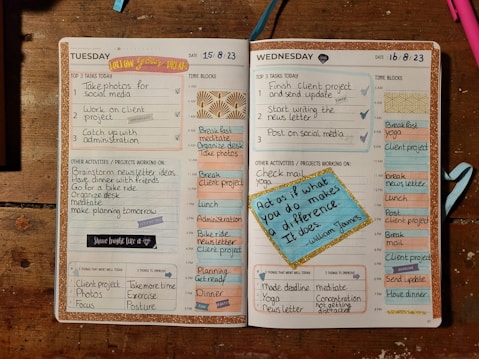 TUESDAY
DATE: 15/8/23
FOLLOW your DREAMS
TOP 3 TASKS TODAY
1 Take photos for
social media
2 Work on client
project
3 Catch up with
administration
OTHER ACTIVITIES / PROJECTS WORKING ON:
Brainstorm newsletter ideas
Have dinner with friends
Go for a bike ride
Organize desk
meditate
make planning tomorrow
TIME BLOCKS
Breakfast
meditate
Organize desk
Take photos
Break
Client project
Lunch
Administration
Bike ride
newsletter
Client project
Planning
Get ready
Dinner
Client project
Photos
Focus
Take more time
Exercise
Posture
WEDNESDAY
DATE: 16/8/23
TOP 3 TASKS TODAY
1 Finish client project
and send update
2 Start writing the
news letter
3 Post on social media
OTHER ACTIVITIES / PROJECTS WORKING ON:
Check mail
yoga
Act as if what
you do makes
a difference.
It does.
William James
TIME BLOCKS
Breakfast
yoga
Client project
break
news letter
Lunch
Post
client project
Break
mail
Client project
Send update
Have dinner
Made deadline
Yoga
News letter
meditate
Concentration
not getting
distracted